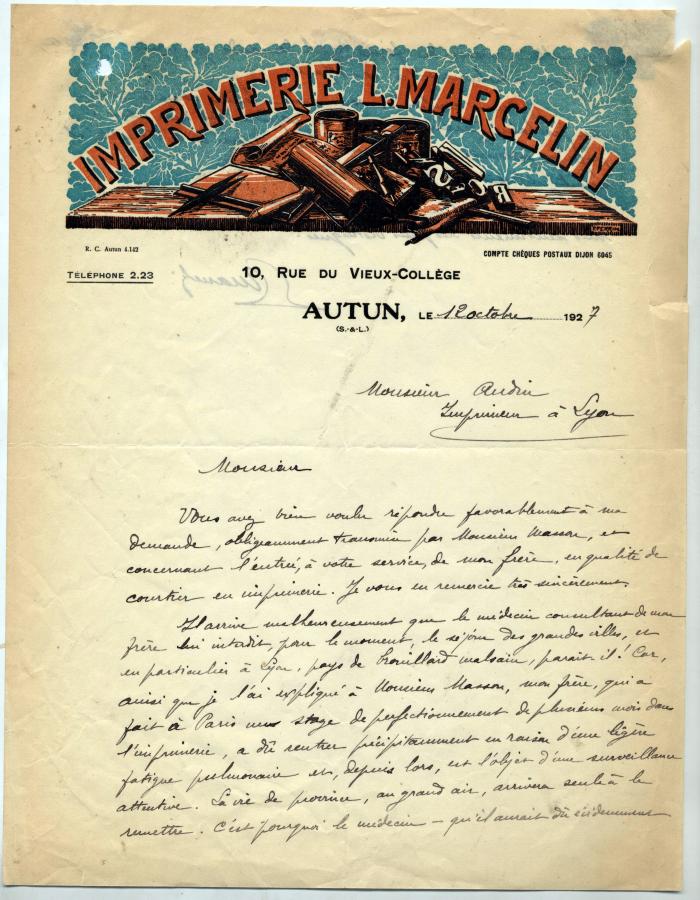 IMPRIMERIE L. MARCELIN
R. C. Autun 4.142
COMPTE CHÈQUES POSTAUX DIJON 6045
TÉLÉPHONE 2.23
10, RUE DU VIEUX-COLLÈGE
AUTUN, LE 12 octobre 1927
(S.-&-L.)
Monsieur Audin
Imprimeur à Lyon
Monsieur
Vous avez bien voulu répondre favorablement à ma
demande, obligeamment transmise par Monsieur Masson, et
concernant l'entrée, à votre service, de mon frère, en qualité de
courtier en imprimerie. Je vous en remercie très sincèrement.
Il arrive malheureusement que le médecin consultant de mon
frère lui interdit, pour le moment, le séjour des grandes villes, et
en particulier à Lyon, pays de brouillard malsain, paraît il ! Car,
ainsi que je l'ai expliqué à Monsieur Masson, mon frère, qui a
fait à Paris un stage de perfectionnement de plusieurs mois dans
l'imprimerie, a dû rentrer précipitamment en raison d'une légère
fatigue pulmonaire et, depuis lors, est l'objet d'une surveillance
attentive. La vie de province, au grand air, arrivera seule à le
remettre. C'est pourquoi le médecin – qu'il aurait dû évidemment